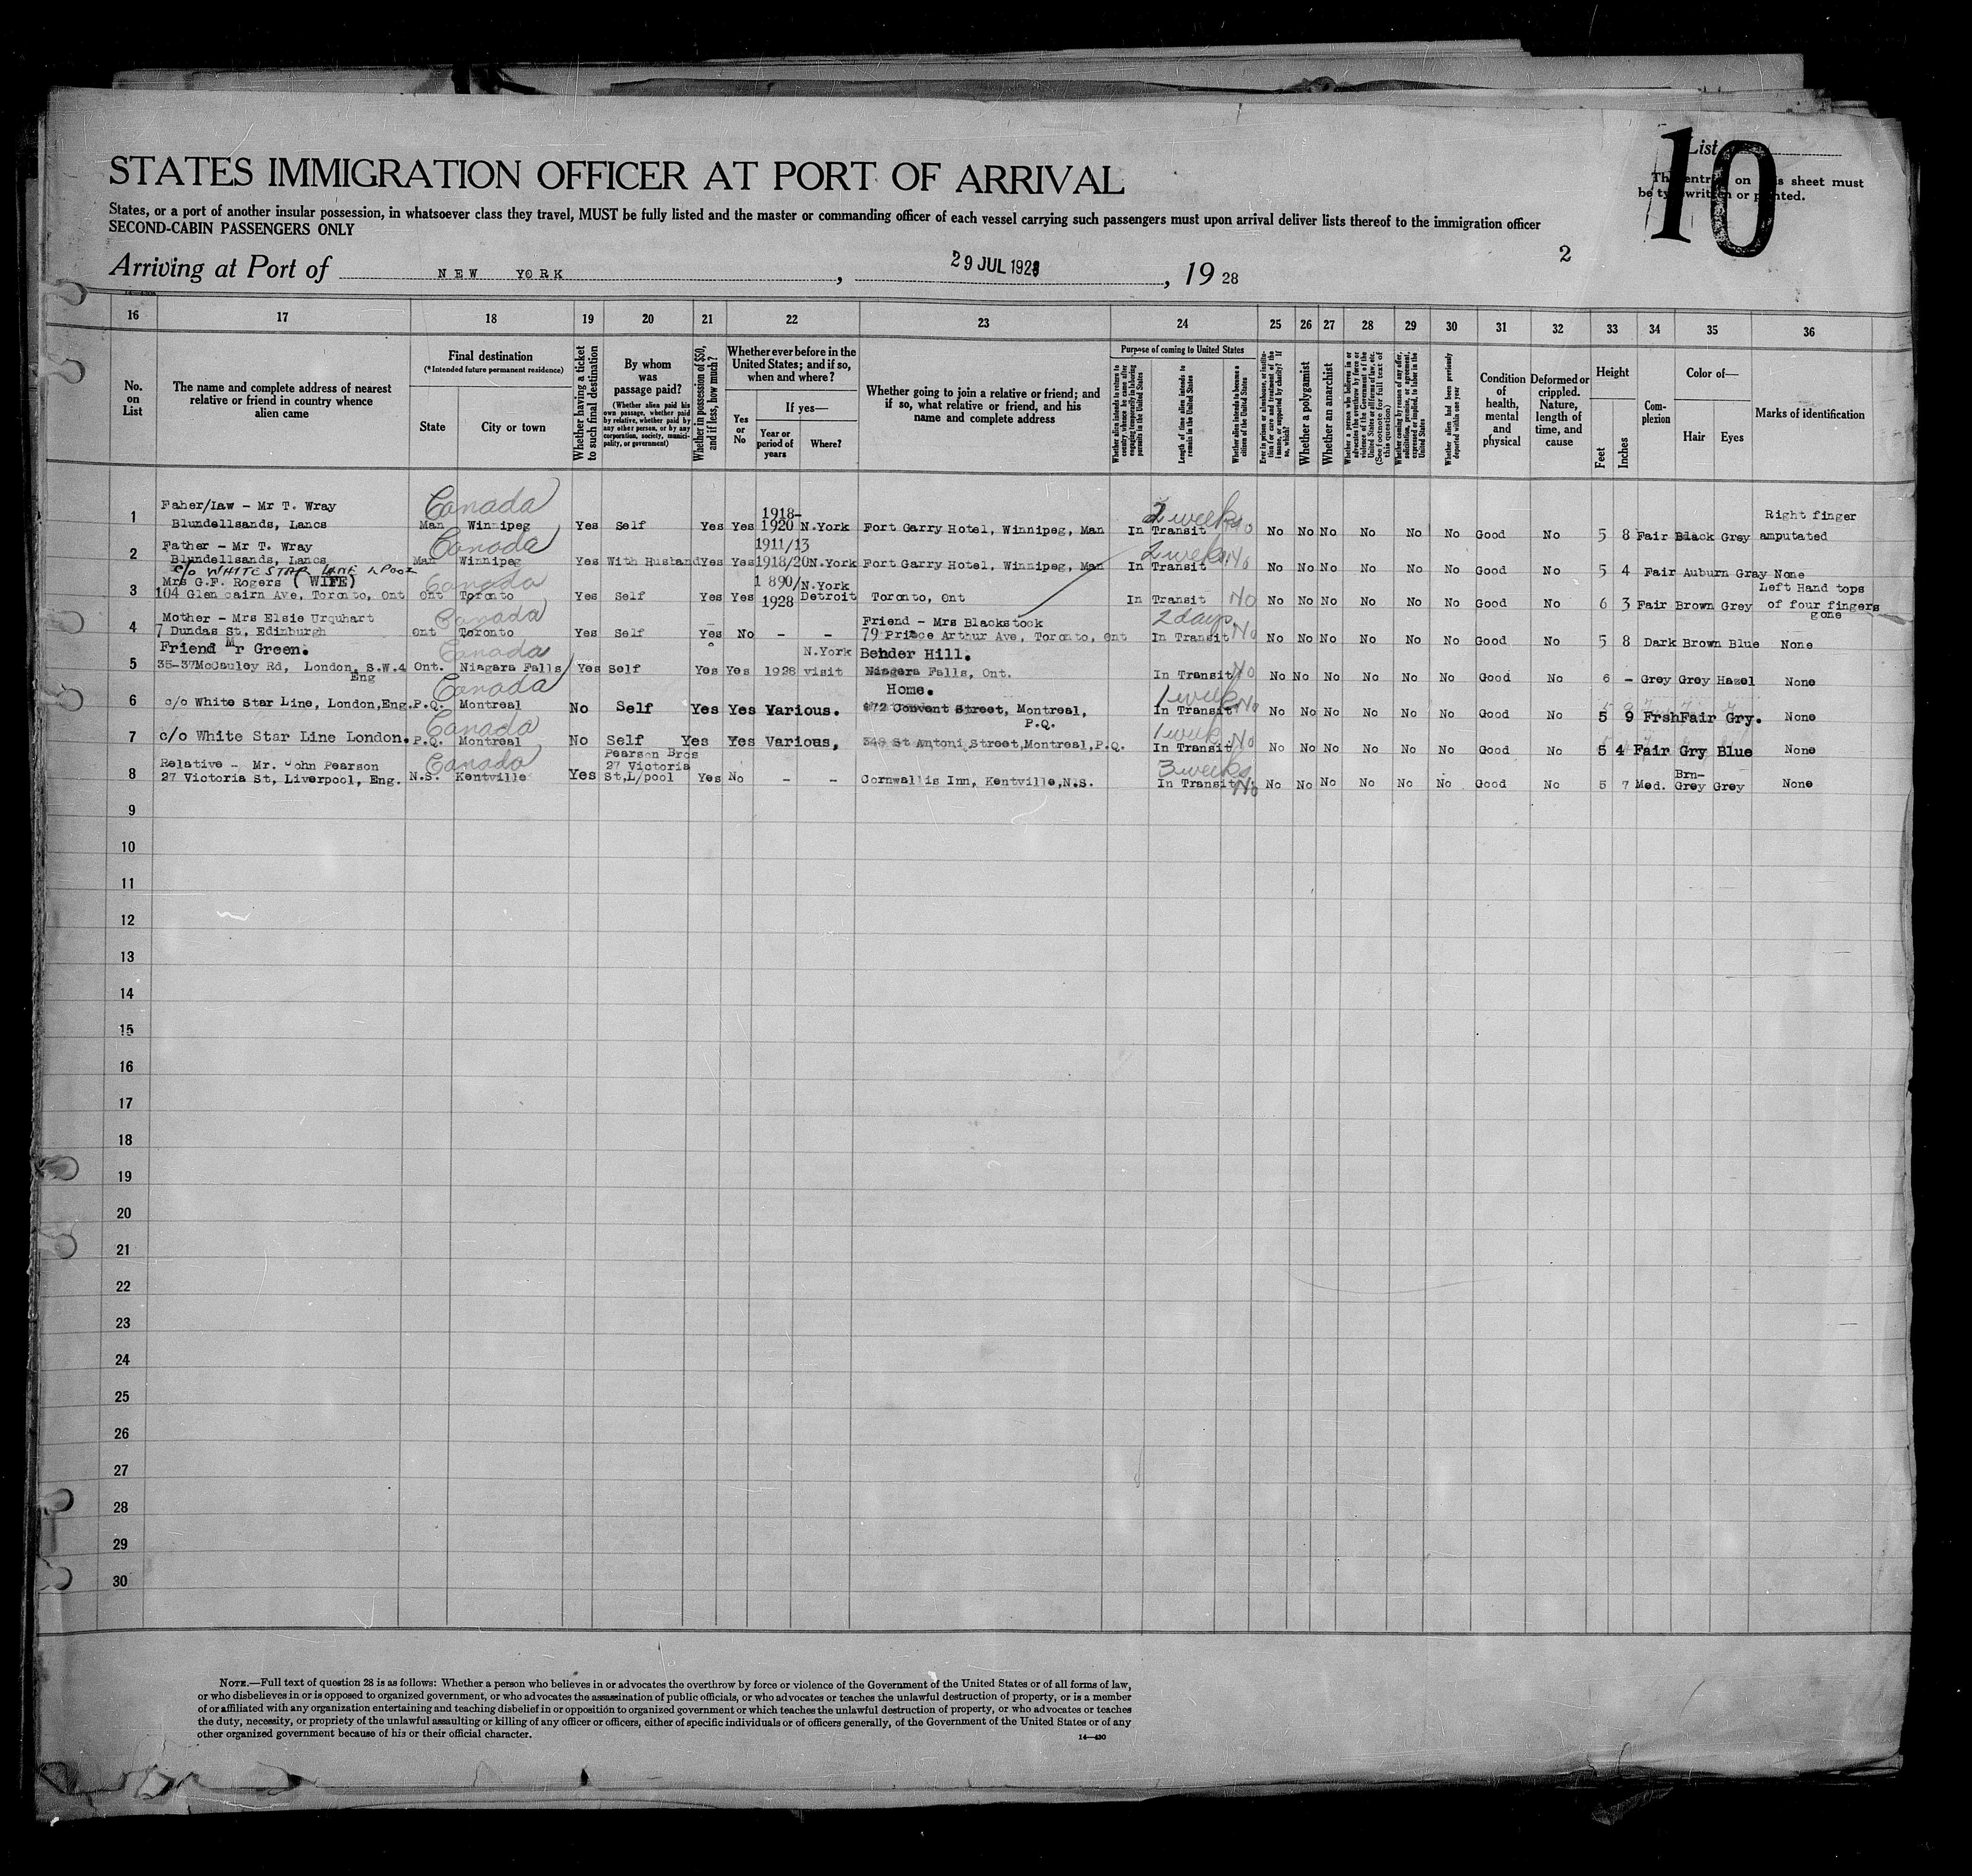 List
10
The entries on this sheet must
be typewritten or printed.
STATES IMMIGRATION OFFICER AT PORT OF ARRIVAL
States, or a port of another insular possession, in whatsoever class they travel, MUST be fully listed and the master or commanding officer of each vessel carrying such passengers must upon arrival deliver lists thereof to the immigration officer
SECOND-CABIN PASSENGERS ONLY
2
Arriving at Port of NEW YORK, 29 JUL 1928, 19 28
16 17 18 19 20 21 22 23 24 25 26 27 28 29 30 31 32 33 34 35 36
No. on List
The name and complete address of nearest relative or friend in country whence alien came
Final destination
(*Intended future permanent residence)
State
City or town
Whether having a ticket to such final destination
By whom was passage paid?
(Whether alien paid his own passage, whether paid by relative, whether paid by any other person, or by any corporation, society, municipality, or government)
Whether in possession of $50, and if less, how much?
Whether ever before in the United States; and if so, when and where?
Yes or No
If yes—
Year or period of years
Where?
Whether going to join a relative or friend; and if so, what relative or friend, and his name and complete address
Purpose of coming to United States
Whether alien intends to return to country whence he came after engaging temporarily in laboring pursuits in the United States
Length of time alien intends to remain in the United States
Whether alien intends to become a citizen of the United States
Ever in prison or almshouse, or institution for care and treatment of the insane, or supported by charity? If so, which?
Whether a polygamist
Whether an anarchist
Whether a person who believes in or advocates the overthrow by force or violence of the Government of the United States or all forms of law, etc. (See footnote for full text of this question)
Whether coming by reason of any offer, solicitation, promise, or agreement, expressed or implied, to labor in the United States
Whether alien had been previously deported within one year
Condition of health, mental and physical
Deformed or crippled. Nature, length of time, and cause
Height
Feet
Inches
Complexion
Color of—
Hair
Eyes
Marks of identification
Faher/Law - Mr T. Wray Canada 1918- 2 weeks Right finger
1 Blundellsands, Lancs Man Winnipeg Yes Self Yes Yes 1920 N.York Fort Garry Hotel, Winnipeg, Man In Transit No No No No No No No Good No 5 8 Fair Black Grey amputated
Father - Mr T. Wray Canada 1911/13 2 weeks
2 Blundellsands, Lancs Man Winnipeg Yes With Husband Yes Yes 1918/20 N.York Fort Garry Hotel, Winnipeg, Man In Transit No No No No No No No Good No 5 4 Fair Auburn Gray None
c/o WHITE STAR LINE LPOOL
Mrs G.F. Rogers (WIFE) Canada 1890/ N.York Left Hand tops
3 104 Glen cairn Ave, Toronto, Ont Ont Toronto Yes Self Yes Yes 1928 Detroit Toronto, Ont In Transit No No No No No No No Good No 6 3 Fair Brown Grey of four fingers
gone
Mother - Mrs Elsie Urquhart Canada Friend - Mrs Blackstock 2 days
4 7 Dundas St, Edinburgh Ont Toronto Yes Self Yes No - - 79 Prince Arthur Ave, Toronto, Ont In Transit No No No No No No No Good No 5 8 Dark Brown Blue None
Friend Mr Green. Canada N.York Bender Hill.
5 35-37McCauley Rd, London, S.W.4 Ont. Niagara Falls Yes Self Yes Yes 1928 visit Niagara Falls, Ont. In Transit No No No No No No No Good No 6 - Grey Grey Hazel None
Eng
Canada Home. 1 week
6 c/o White Star Line, London,Eng. P.Q. Montreal No Self Yes Yes Various. 872 Convent Street, Montreal, In Transit No No No No No No No Good No 5 9 Frsh Fair Gry. None
P.Q.
Canada 1 week
7 c/o White Star Line London. P.Q. Montreal No Self Yes Yes Various, 348 St Antoni Street,Montreal,P.Q. In Transit No No No No No No No Good No 5 4 Fair Gry Blue None
Relative - Mr. John Pearson Canada Pearson Bros 27 Victoria 3 weeks Brn-
8 27 Victoria St, Liverpool, Eng. N.S. Kentville Yes St,L/pool Yes No - - Cornwallis Inn, Kentville,N.S. In Transit No No No No No No No Good No 5 7 Med. Grey Grey None
9
10
11
12
13
14
15
16
17
18
19
20
21
22
23
24
25
26
27
28
29
30
NOTE.—Full text of question 28 is as follows: Whether a person who believes in or advocates the overthrow by force or violence of the Government of the United States or of all forms of law,
or who disbelieves in or is opposed to organized government, or who advocates the assassination of public officials, or who advocates or teaches the unlawful destruction of property, or is a member
of or affiliated with any organization entertaining and teaching disbelief in or opposition to organized government or which teaches the unlawful destruction of property, or who advocates or teaches
the duty, necessity, or propriety of the unlawful assaulting or killing of any officer or officers, either of specific individuals or of officers generally, of the Government of the United States or of any
other organized government because of his or their official character.
14—430